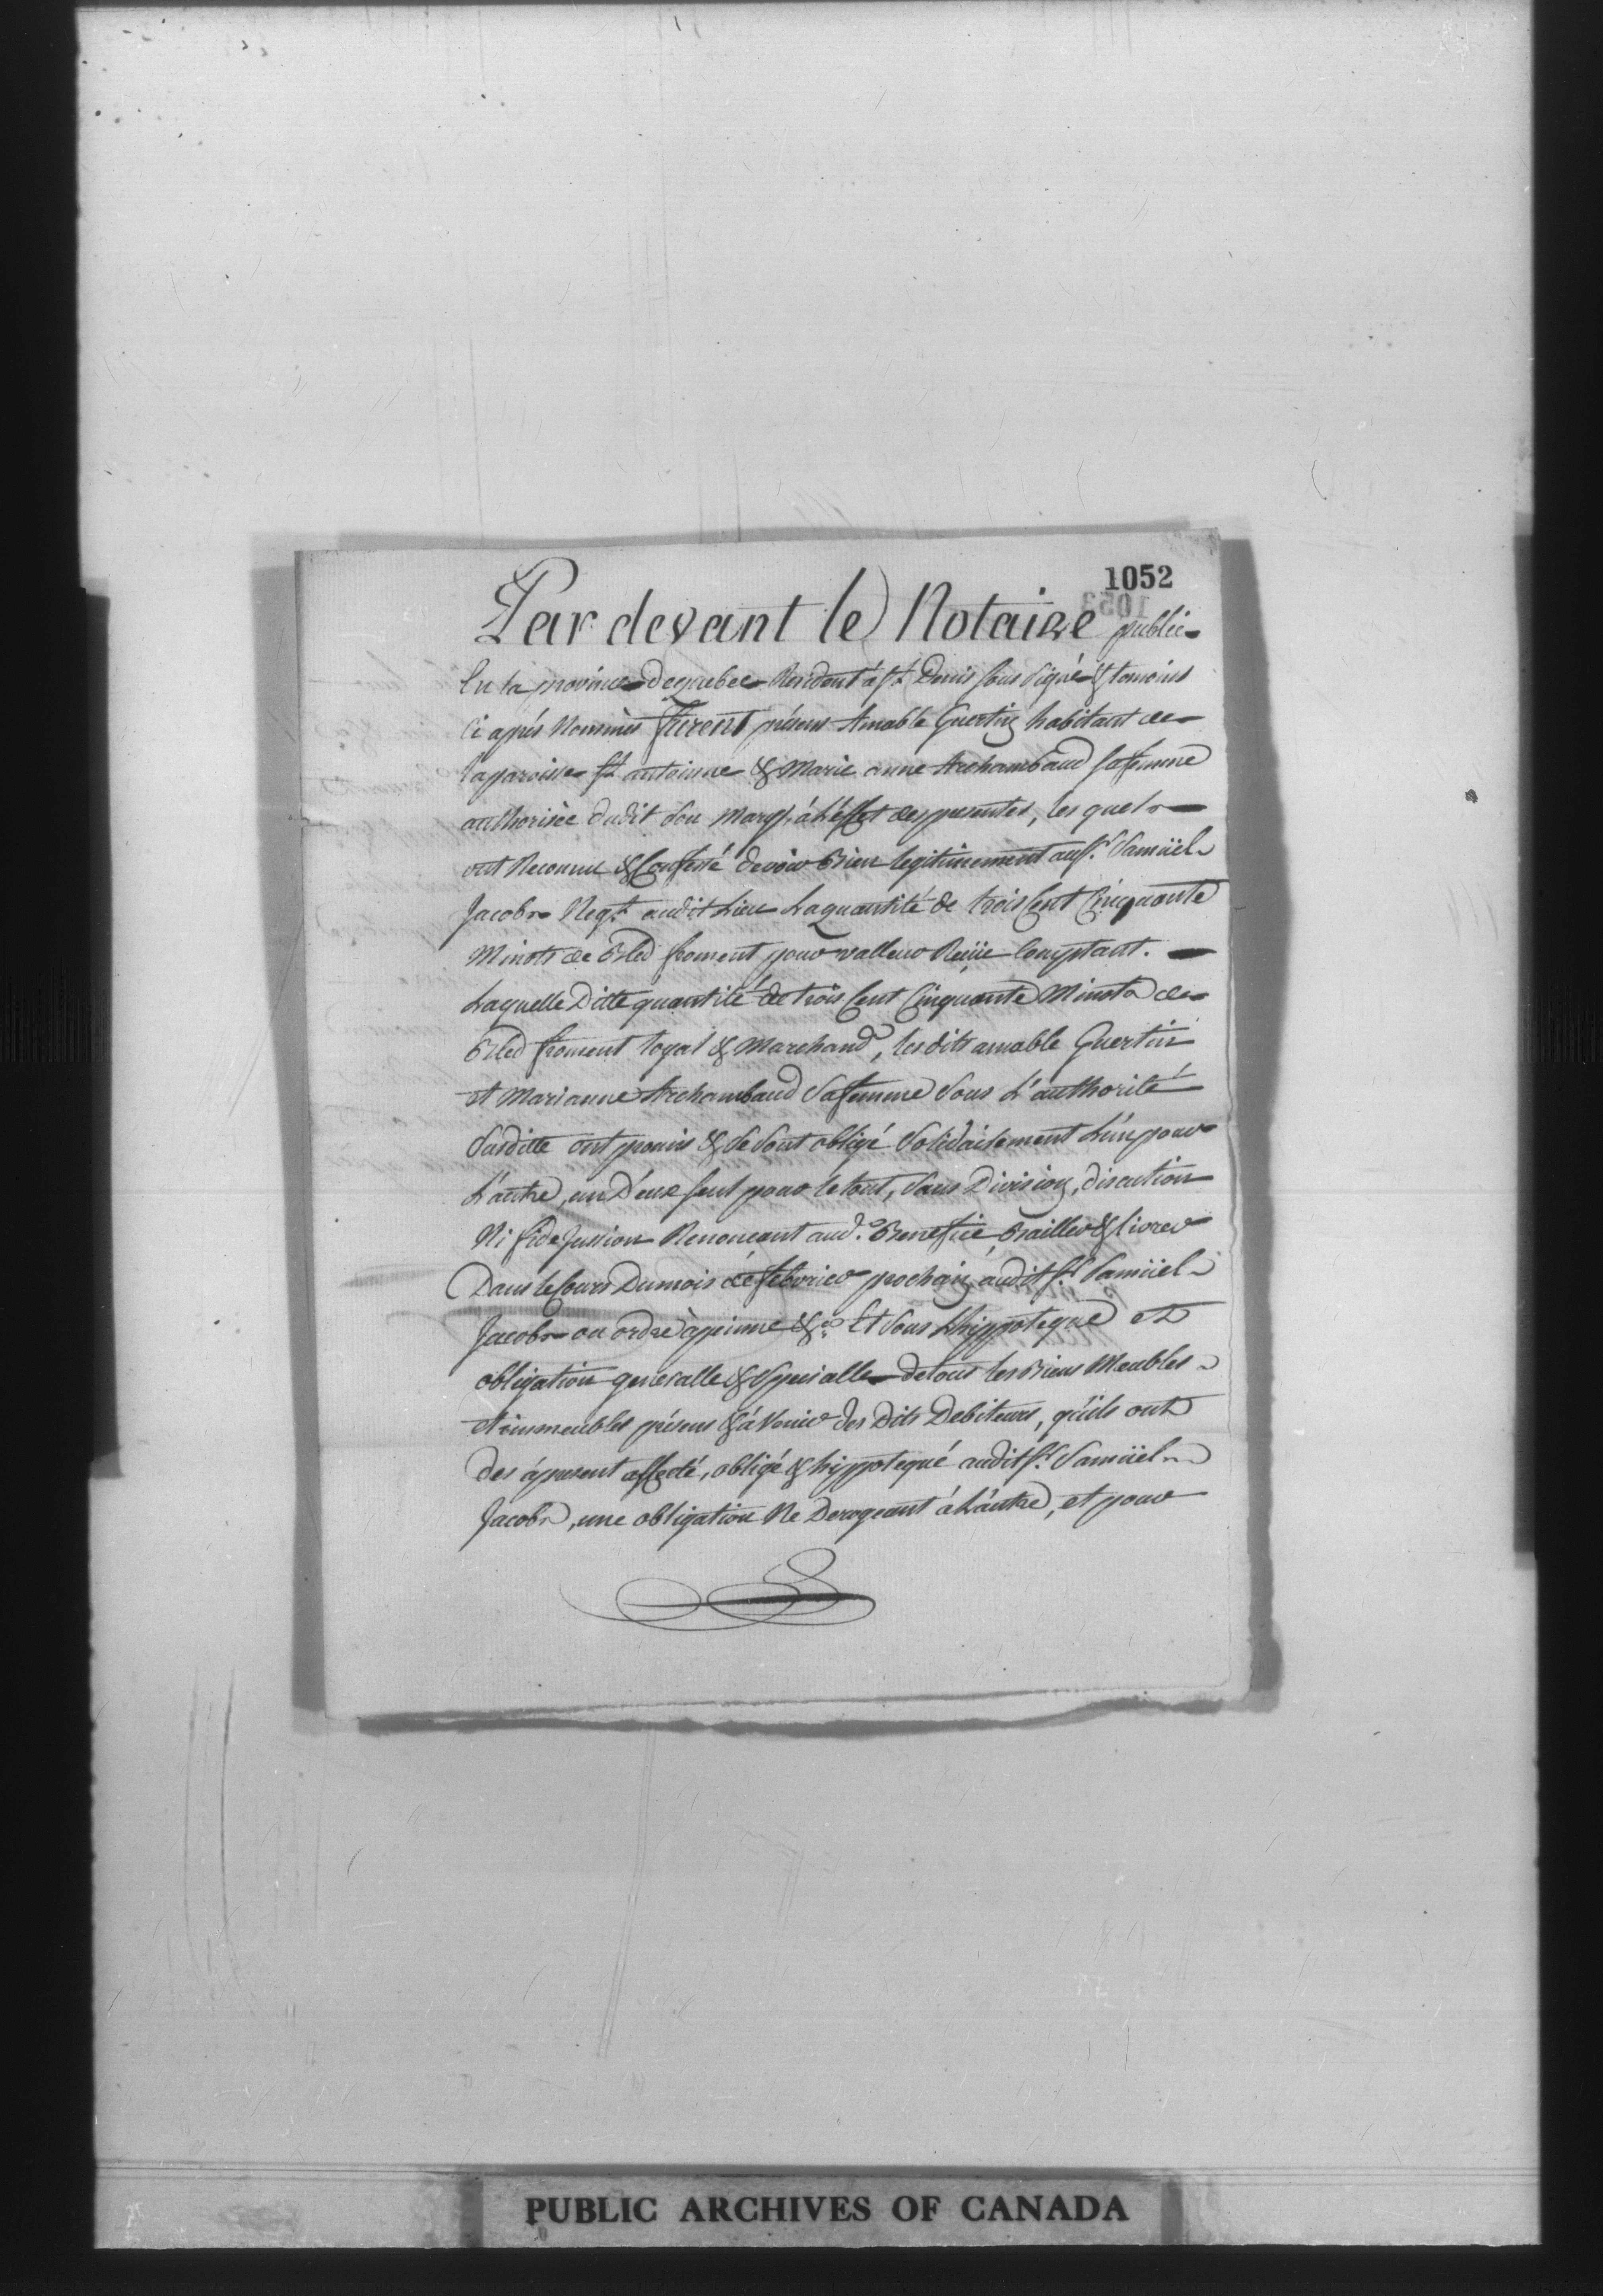 1052
Par devant le Notaire public
En la province de quebec Resident à St. Denis sous signé & temoins
Ci après Nommés furent présens Amable Guertin habitant de
la paroisse St antoinne & Marie anne Archambaud sa femme
authorisée dudit son Mary, à L'effet des presentes, les quels
ont Reconnu & Confessé devoir Bien legitimement au Sr. Samüel
Jacobs Negt. audit Lieu La quantité de trois Cent Cinquante
Minots de Bled froment pour valleur Reüe Comptant.
Laquelle Ditte quantité de trois Cent Cinquante Minots de
Bled froment loyal & Marchand, les dits amable Guertin
et Marianne Archambaud Sa femme Sous L'authorité
Susditte ont promis & Se Sont obligé Solidairement L'un pour
L'autre, un D'eux seul pour le tout, Sans Division, discution
Ni fidejussion Renonçant aud. Benefice, Bailler & livrer
Dans le Cours Du mois de febvrier prochain, audit Sr. Samüel
Jacobs ou ordre à peinne &c. Et Sous L'hippoteque et
obligation generalle & Specialle de tous les Biens Meubles
et immeubles présens & à Venir des Dits Debiteurs, qu'ils ont
des à present affecté, obligé & hippotequé audit Sr. Samüel
Jacobs, une obligation Ne Derogeant à L'autre, et pour
PUBLIC ARCHIVES OF CANADA